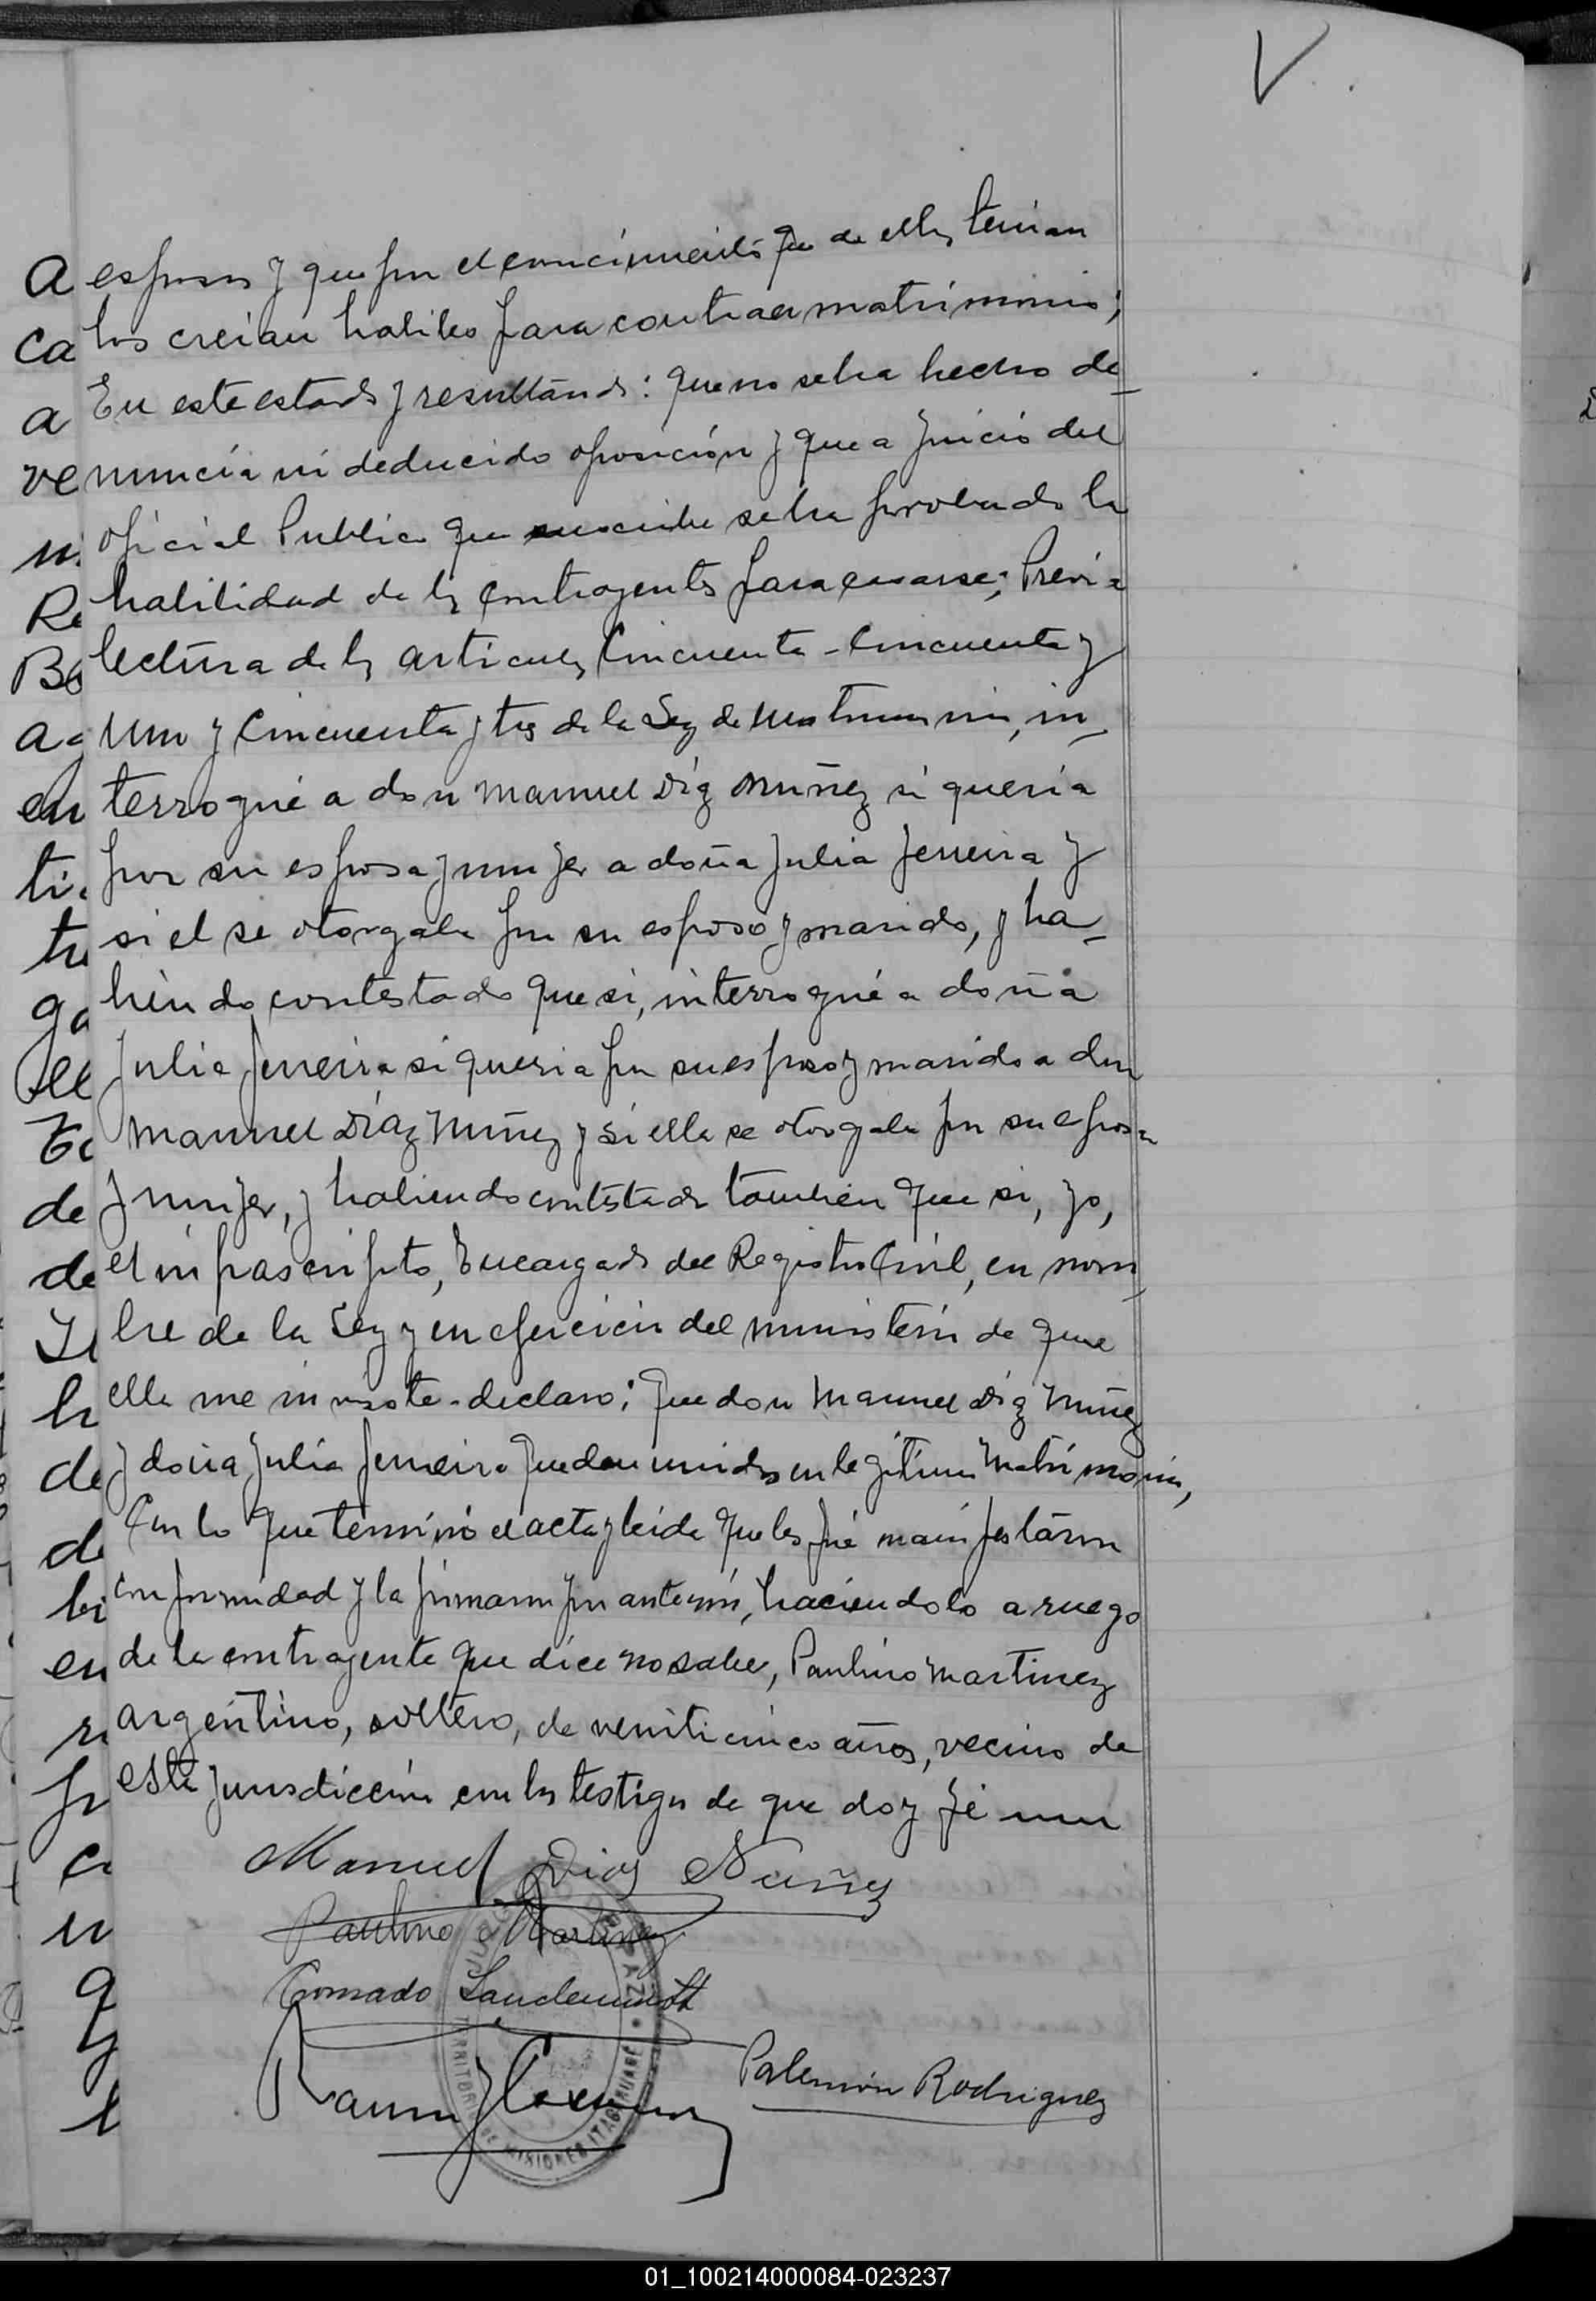 esposos y que por el conocimiento que de ellos tenian
los creian habiles para contraer matrimonio;
En este estado y resultando: que no se ha hecho de-
nuncia ni deducido oposición y que a juicio del
oficial Publico que suscribe se ha probado la
habilidad de los contrayentes para casarse; Previa
lectura de los articulos Cincuenta - Cincuenta y
uno y Cincuenta y tres de la Ley de matrimonio, in-
terrogué a don Manuel Díaz Núñez si queria
por su esposa y mujer a doña Julia Ferreira y
si el se otorgaba por su esposo y marido, y ha-
biendo contestado que si, interrogué a doña
Julia Ferreira si queria por su esposo y marido a don
Manuel Díaz Núñez y si ella se otorgaba por su esposa
y mujer, y habiendo contestado tambien que si, yo,
el infrascripto, Encargado del Registro Civil, en nom-
bre de la Ley y en ejercicio del ministerio de que
ella me inviste - declaro: que don Manuel Díaz Núñez
y doña Julia Ferreira quedan unidos en legítimo Matrimonio,
Con lo que terminó el acta y leida que les fué manifestaron
conformidad y la firmaron por ante mi, haciendolo a ruego
de la contrayente que dice no saber, Paulino Martinez
argentino, soltero, de veinticinco años, vecino de
esta jurisdicción con los testigos de que doy fé
Manuel Diaz Nuñez
Paulino Martinez
Conrado
Ramon J
Palemón Rodriguez
JUZGADO DE PAZ
TERRITORIO DE MISIONES ITACARUARE
V
A
ca
a
ve
ni
Re
Bo
a
en
ti
tr
ga
el
de
de
de
de
en
01_100214000084-023237